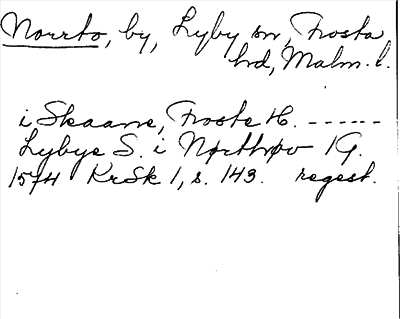 Norrto, by, Lyby sn, Frosta
hd, Malm. l.
i Skaane, Froste H. ------
Lybye S. i Nørthrøv 1 G.
1574 KrSk 1, s. 143. regest.